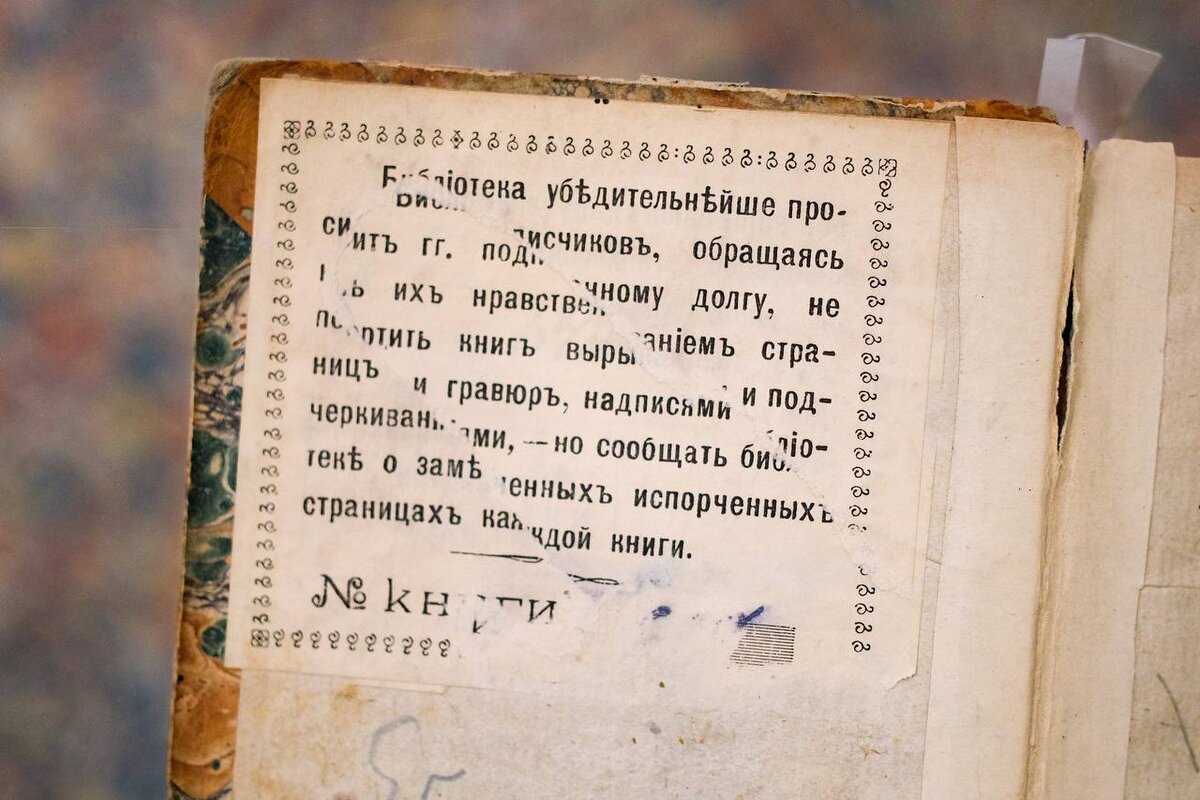 Библіотека убѣдительнѣйше про-
ситъ гг. подписчиковъ, обращаясь
ихъ нравственному долгу, не
портить книгъ вырываніемъ стра-
ницъ и гравюръ, надписями и под-
черкиваніями, — но сообщать библіо-
текѣ о замѣченныхъ испорченныхъ
страницахъ каждой книги.
№ книги